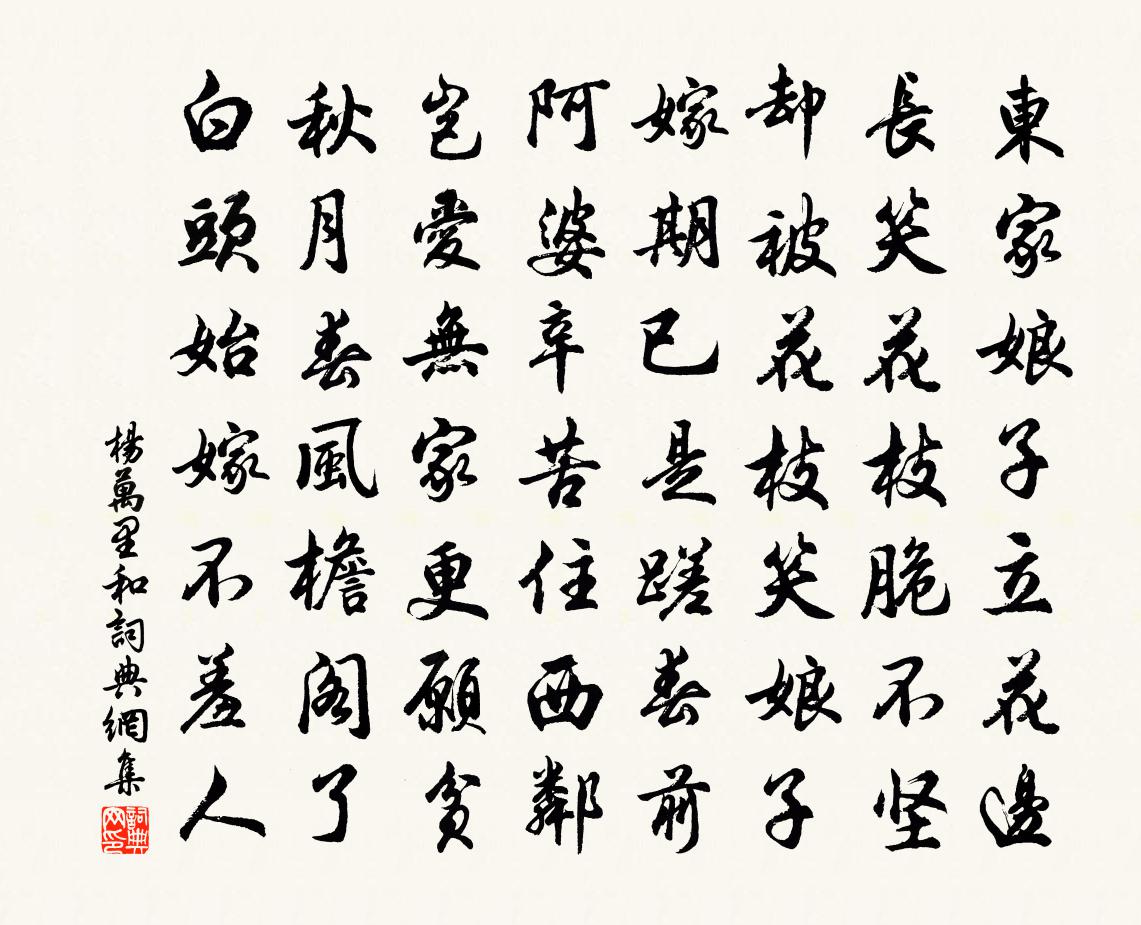 東家娘子立花邊
長笑花枝脆不坚
却被花枝笑娘子
嫁期已是蹉春前
阿婆辛苦住西鄰
豈愛無家更願貧
秋月春風檐閣了
白頭始嫁不羞人
楊萬里和詞典網集
詞典网印